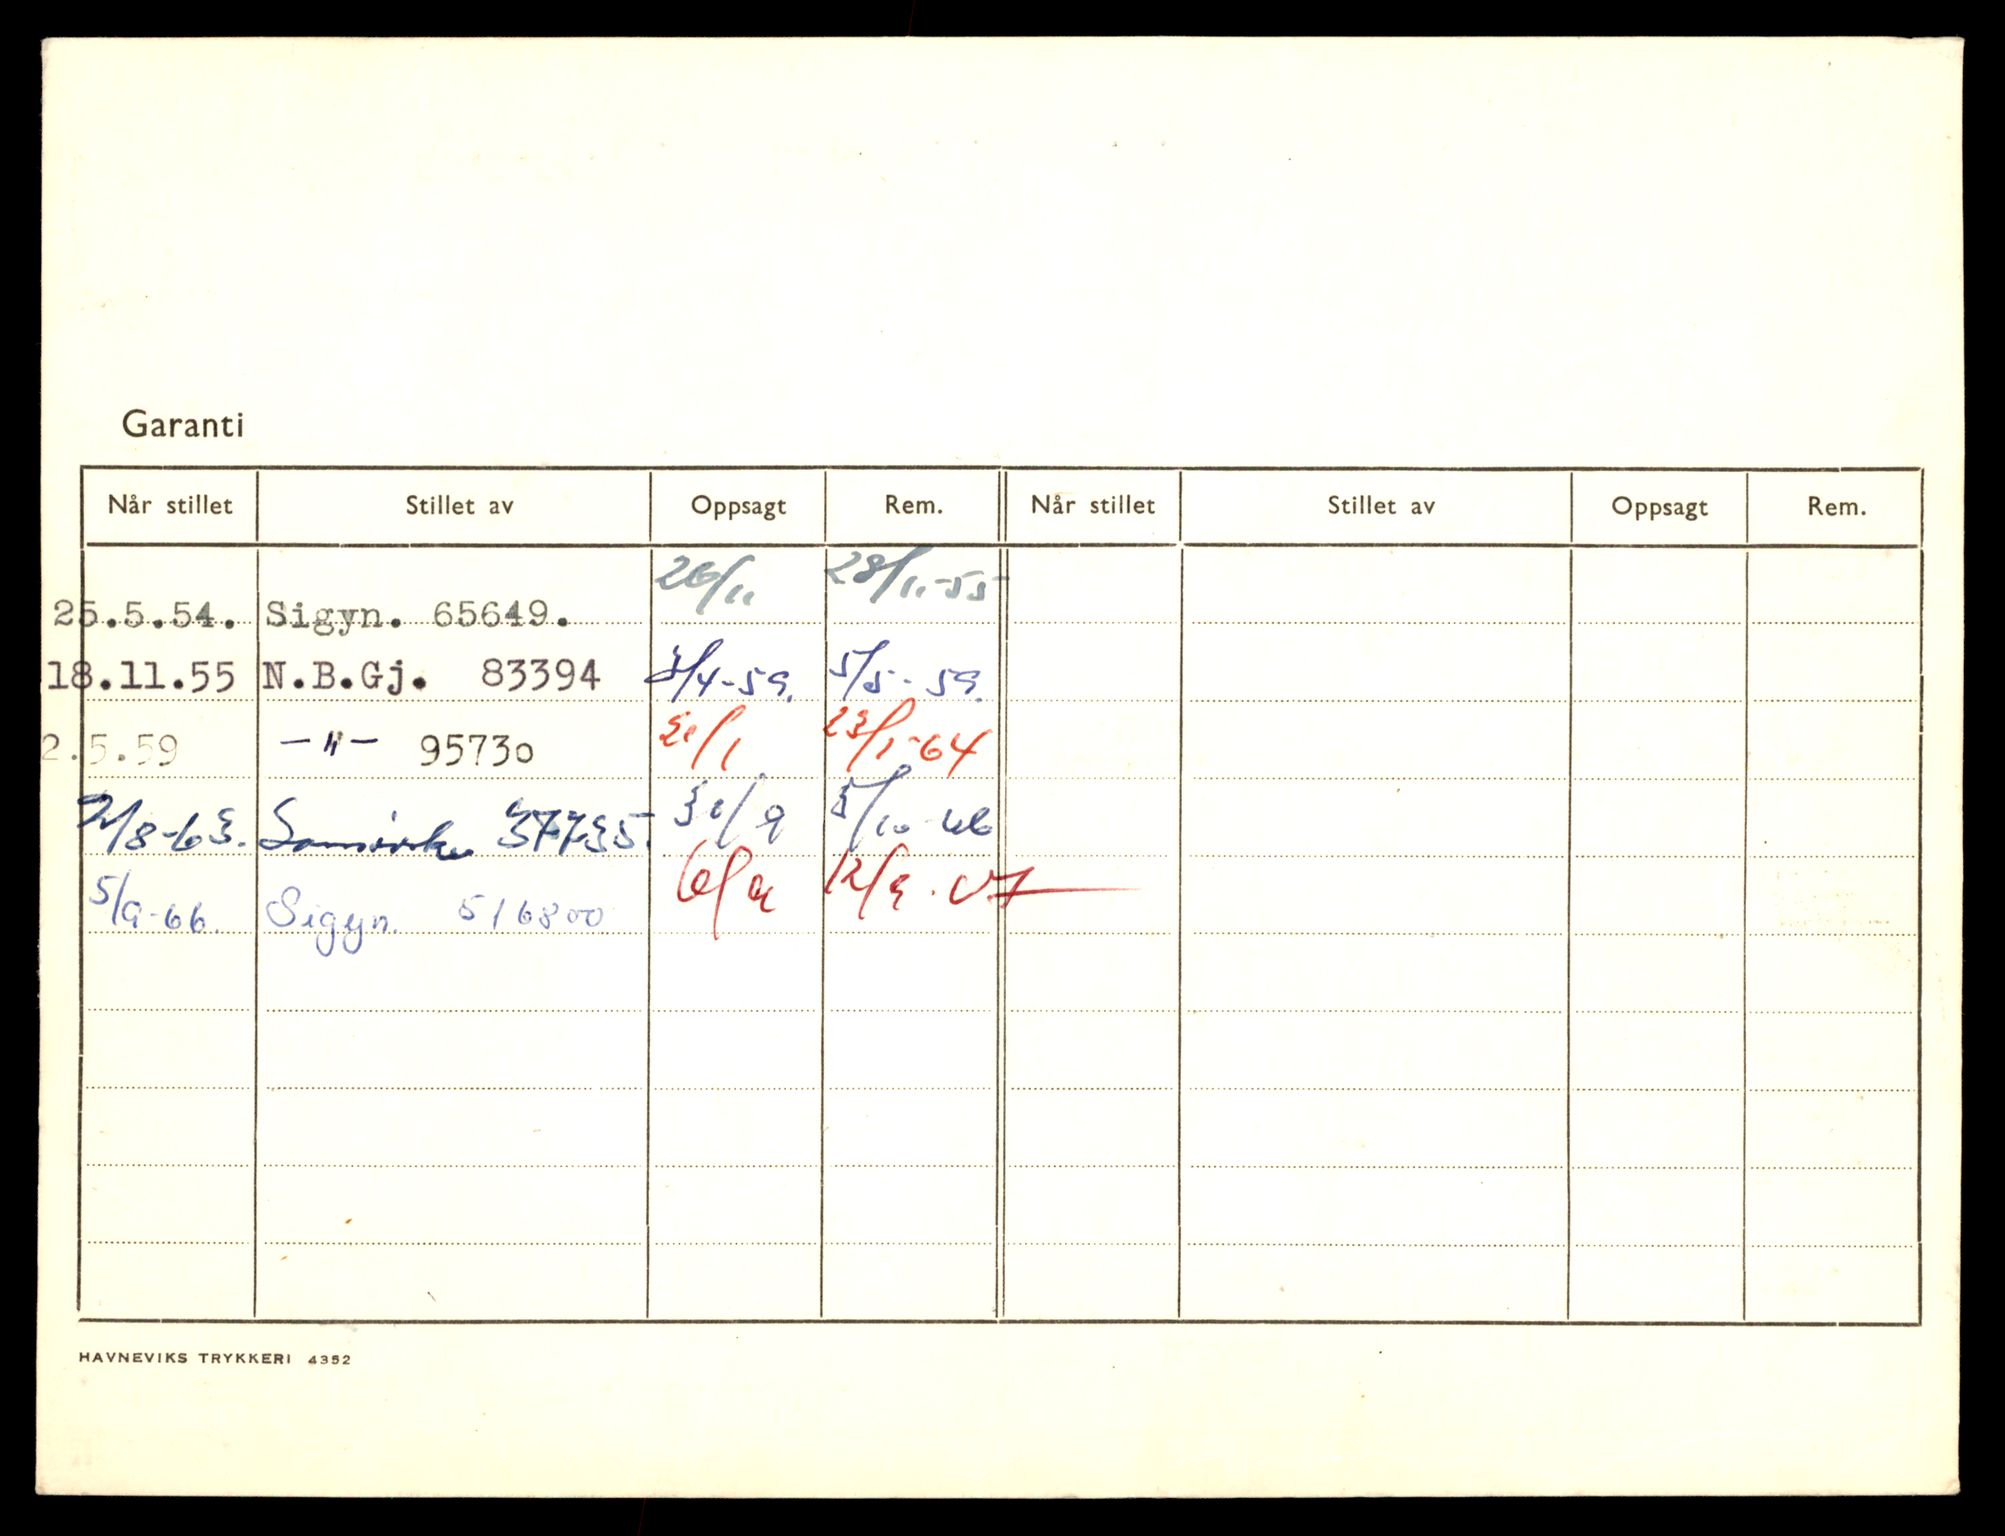 Garanti
Når stillet Stillet av Oppsagt Rem. Når stillet Stillet av Oppsagt Rem.
25.5.54. Sigyn. 65649. 26/11 28/11-55
18.11.55 N.B.Gj. 83394 3/4-59. 5/5-59.
2.5.59 -"- 95730 21/1 23/1-64
2/8-63. Samvirke 37735. 30/9 5/10-66
5/9-66. Sigyn. 516800 6/9 12/9-67
HAVNEVIKS TRYKKERI 4352